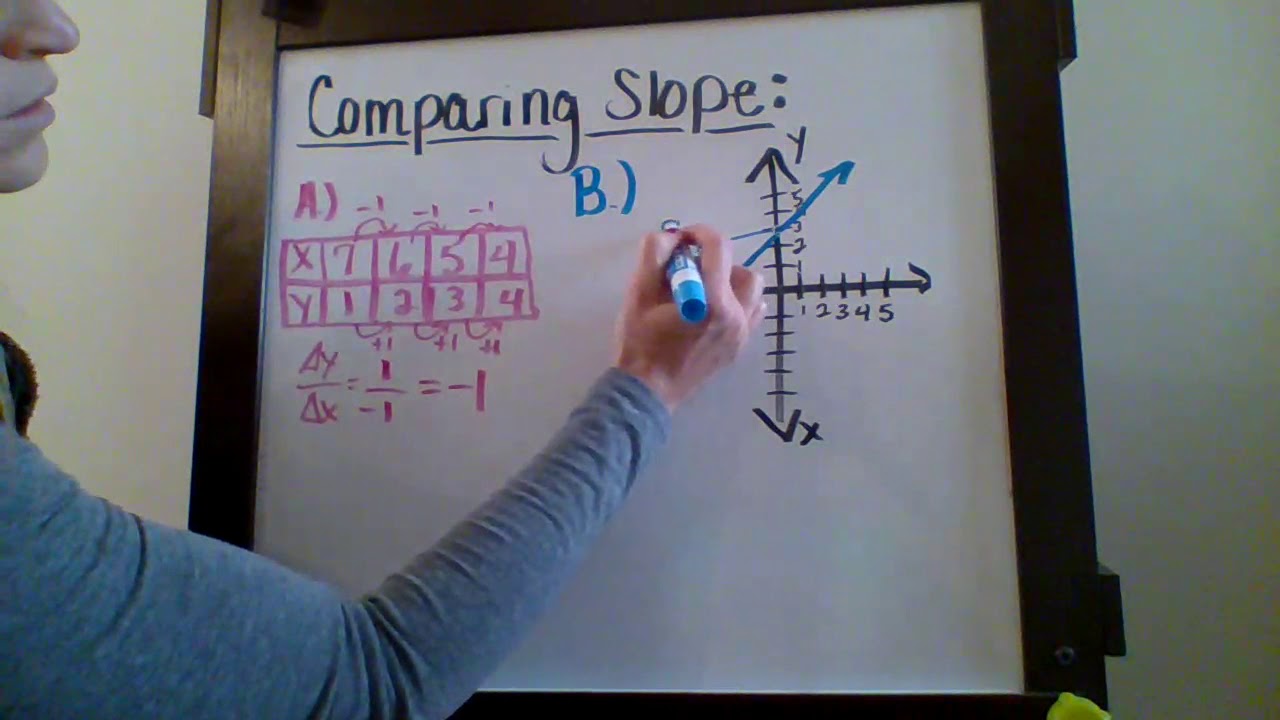 Comparing Slope:
A.) -1 -1 -1
X 7 6 5 4
Y 1 2 3 4
+1 +1 +1
Δy/Δx = 1/-1 = -1
B.)
y
5
3
2
1
1 2 3 4 5
x